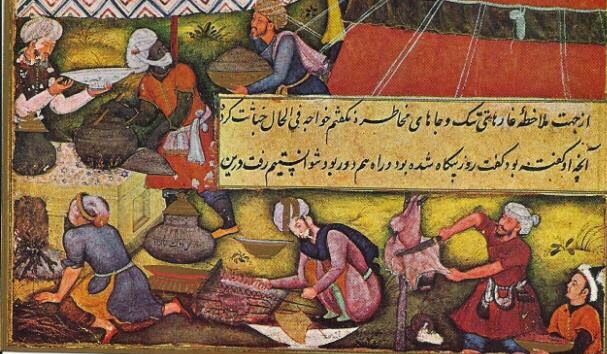 از جهت ملاحظهٔ غارهای تنگ و جاهای مخاطره نگفتم خواجه فی الحال خباثت کرد
آنچه او گفته بود گفت روز بیگاه شده بود و راه هم دور بود نتوانستیم رفت درین